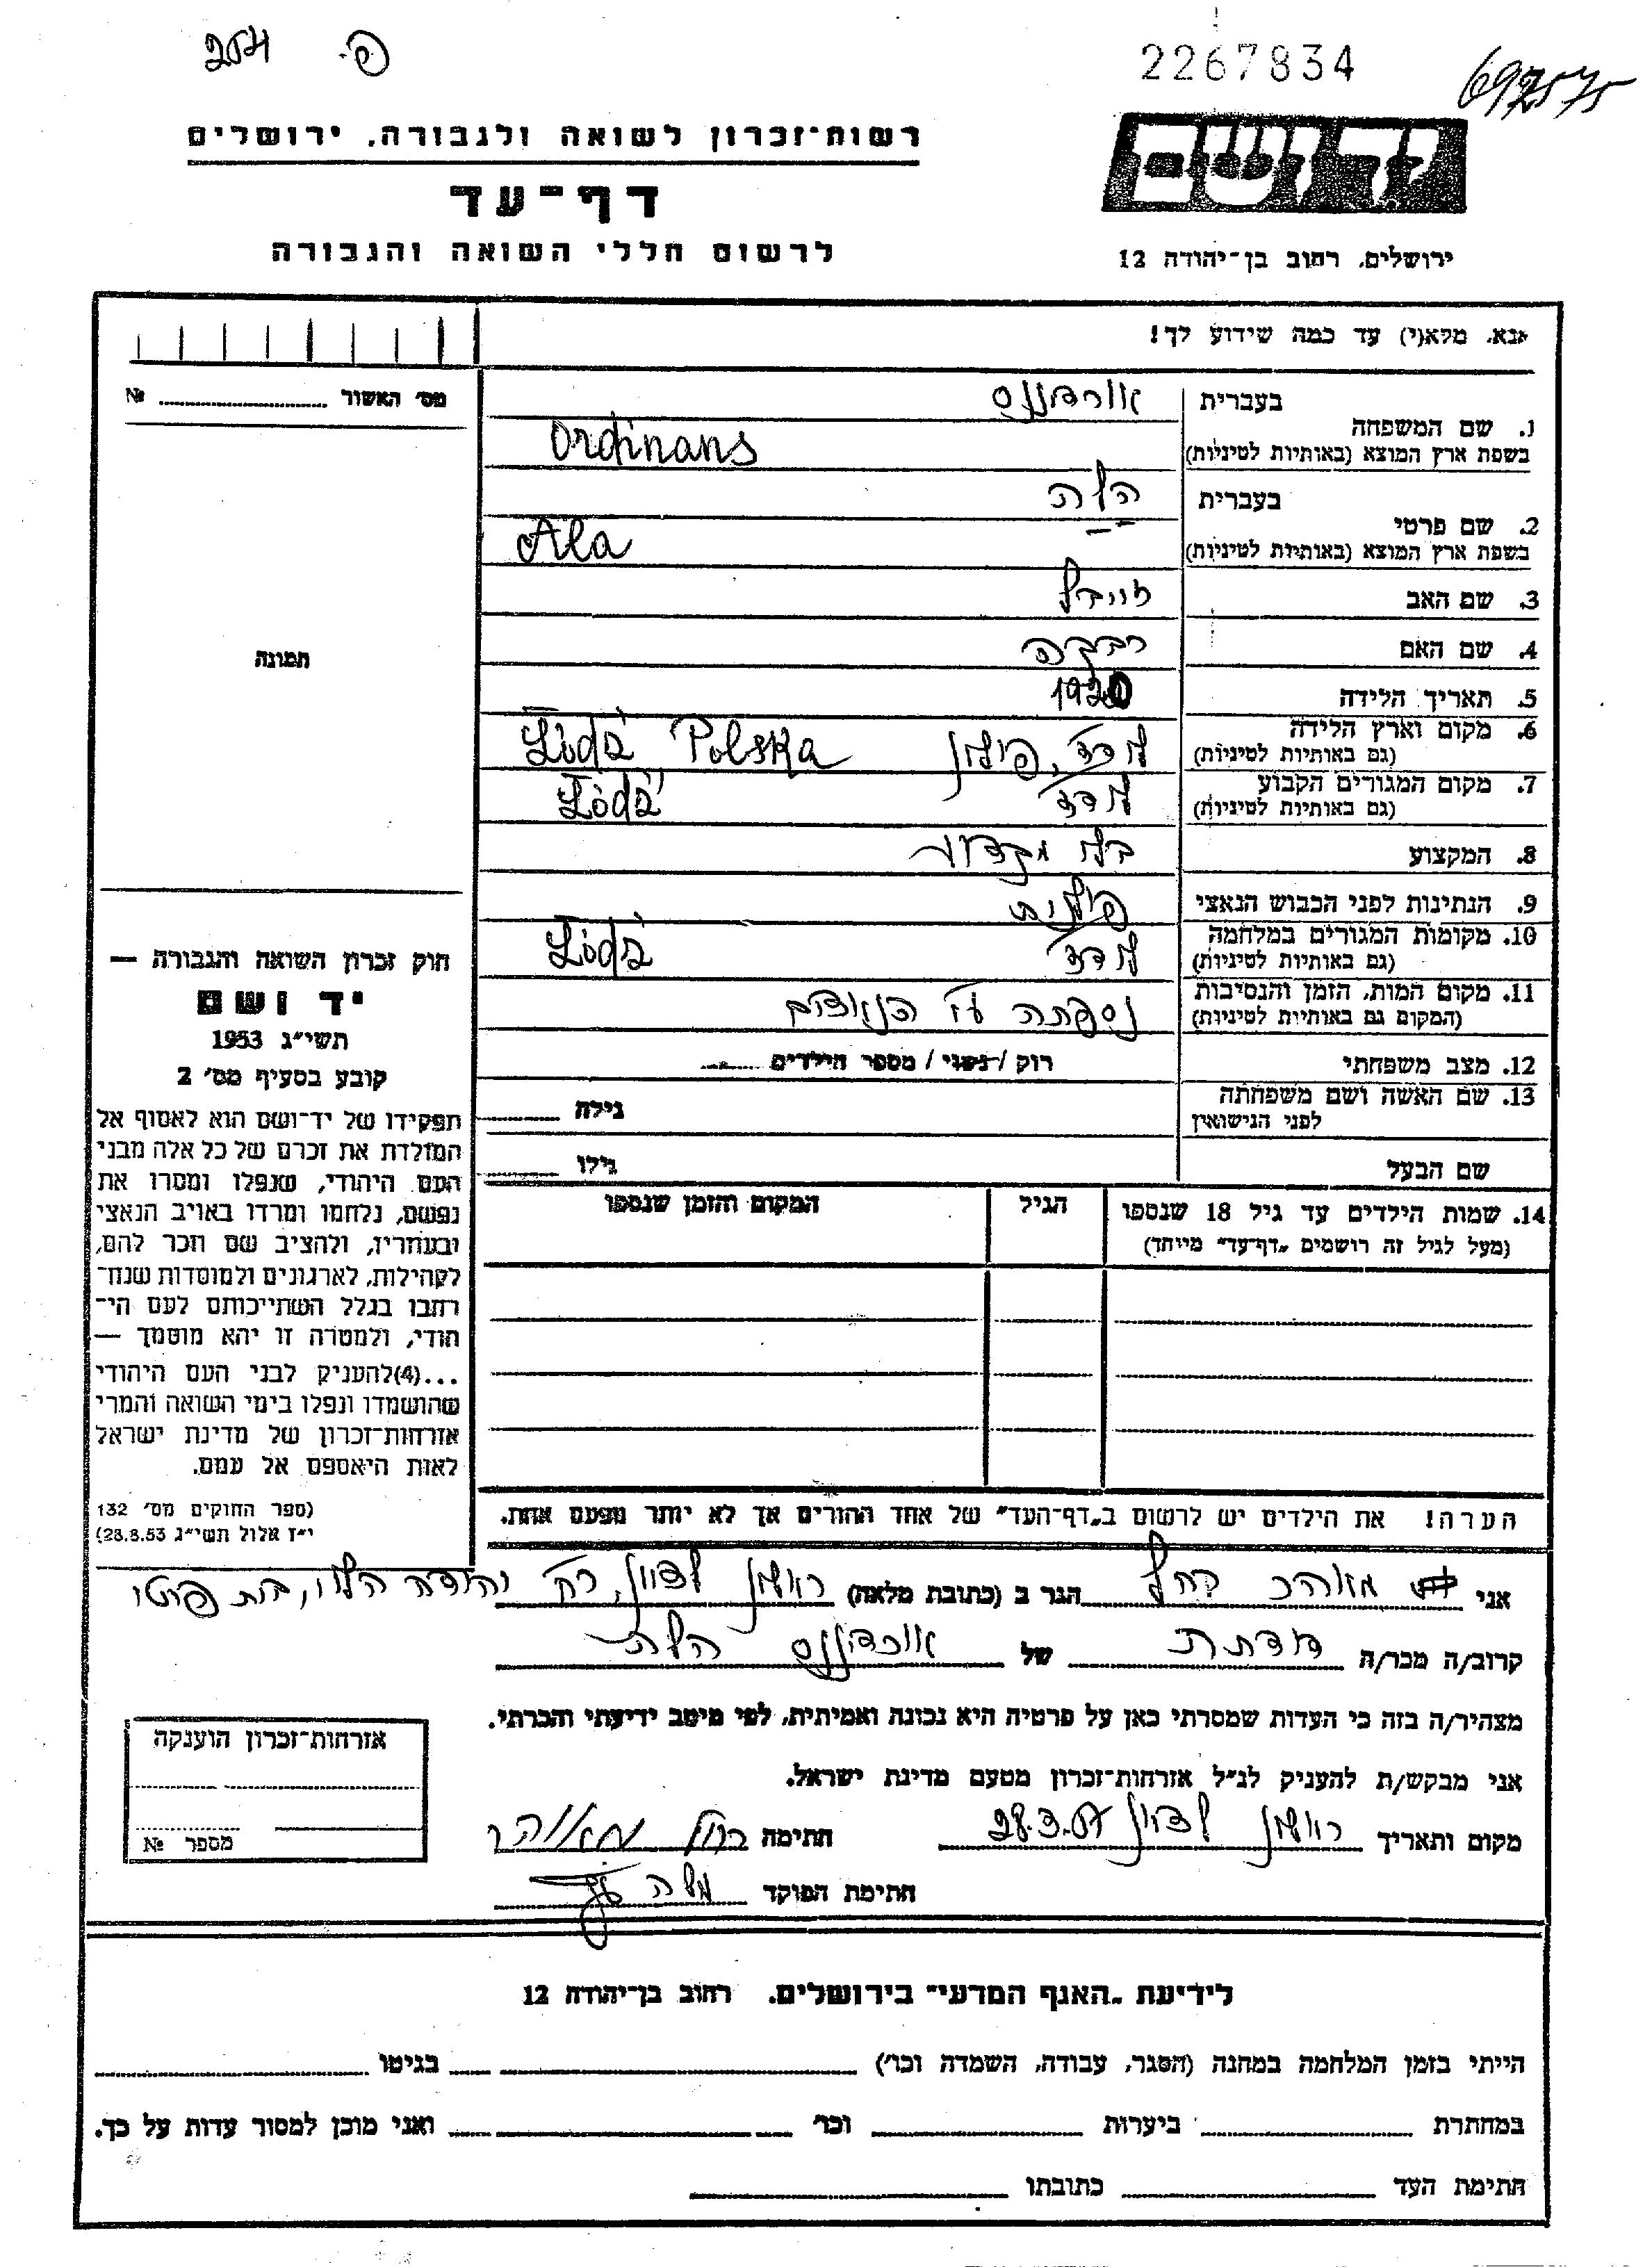 204 פ.
2267834
697575
יד ושם
רשות־זכרון לשואה ולגבורה, ירושלים
דף־עד
לרשום חללי השואה והגבורה
ירושלים, רחוב בן־יהודה 12
אנא, מלא(י) עד כמה שידוע לך!
מס׳ האשור № 
1. שם המשפחה
בעברית אורדיננס
בשפת ארץ המוצא (באותיות לטיניות) Ordinans
2. שם פרטי
בעברית הלה
בשפת ארץ המוצא (באותיות לטיניות) Ala
3. שם האב זיידל
4. שם האם רבקה
5. תאריך הלידה 1920
6. מקום וארץ הלידה
(גם באותיות לטיניות) לודז, פולין Łódź Polska
7. מקום המגורים הקבוע
(גם באותיות לטיניות) לודז Łódź
8. המקצוע בלי מקצוע
9. הנתינות לפני הכבוש הנאצי פולנית
10. מקומות המגורים במלחמה
(גם באותיות לטיניות) לודז Łódź
11. מקום המות, הזמן והנסיבות
(המקום גם באותיות לטיניות) נספתה ע״י הנאצים
12. מצב משפחתי רוק / נשוי / מספר הילדים
13. שם האשה ושם משפחתה
לפני הנישואין גילה
שם הבעל גילו
14. שמות הילדים עד גיל 18 שנספו
(מעל לגיל זה רושמים „דף־עד״ מיוחד)
הגיל
המקום והזמן שנספו
תמונה
חוק זכרון השואה והגבורה —
יד ושם
תשי״ג 1953
קובע בסעיף מס׳ 2
תפקידו של יד־ושם הוא לאסוף אל
המולדת את זכרם של כל אלה מבני
העם היהודי, שנפלו ומסרו את
נפשם, נלחמו ומרדו באויב הנאצי
ובעוזריו, ולהציב שם וזכר להם,
לקהילות, לארגונים ולמוסדות שנח־
רבו בגלל השתייכותם לעם הי־
הודי, ולמטרה זו יהא מוסמך —
...(4)להעניק לבני העם היהודי
שהושמדו ונפלו בימי השואה והמרי
אזרחות־זכרון של מדינת ישראל
לאות היאספם אל עמם.
(ספר החוקים מס׳ 132
י״ז אלול תשי״ג 28.8.53)
הערה! את הילדים יש לרשום ב„דף־העד״ של אחד ההורים אך לא יותר מפעם אחת.
אני מאוהר רחל הגר ב (כתובת מלאה) ראשון לציון, רח׳ יהודה הלוי,
קרוב/ה מכר/ה דודתה של אורדיננס הלה
מצהיר/ה בזה כי העדות שמסרתי כאן על פרטיה היא נכונה ואמיתית, לפי מיטב ידיעתי והכרתי.
אני מבקש/ת להעניק לנ״ל אזרחות־זכרון מטעם מדינת ישראל.
מקום ותאריך ראשון לציון 28.3.57 חתימה רחל מאוהר
חתימת הפוקד
אזרחות־זכרון הוענקה
מספר №
לידיעת „האגף המדעי״ בירושלים, רחוב בן־יהודה 12
הייתי בזמן המלחמה במחנה (הסגר, עבודה, השמדה וכר׳) בגיטו
במחתרת ביערות וכר׳ ואני מוכן למסור עדות על כך.
חתימת העד כתובתו